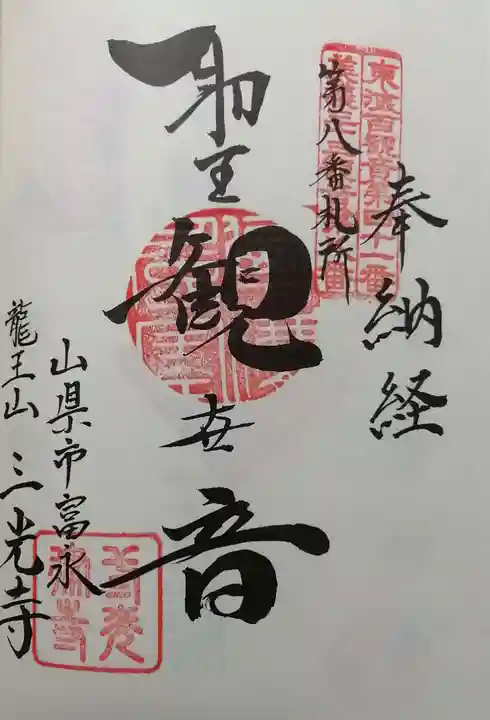 奉納経
第八番札所
東海百観音第四十一番
美濃三十三観音第八番
聖観世音
山県市富永
龍王山 三光寺